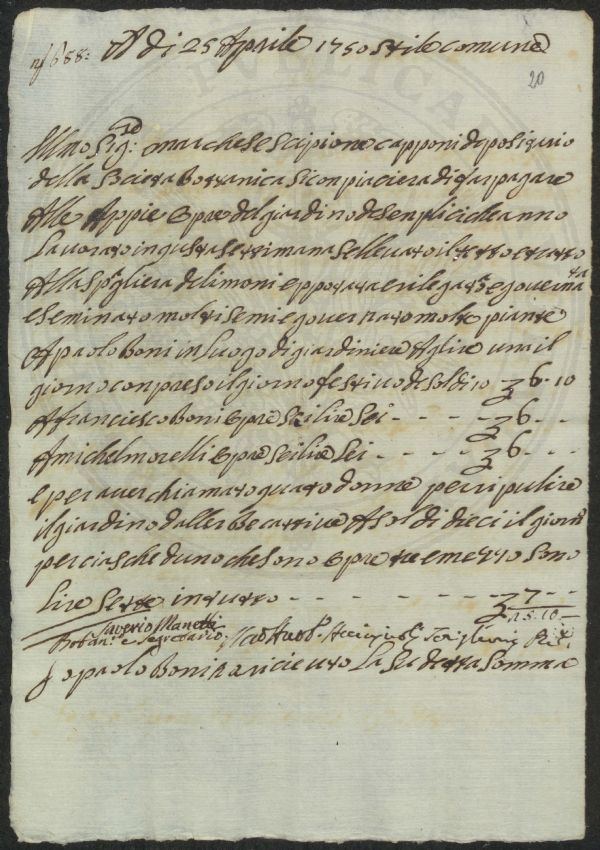 A di 25 Aprile 1750 stile comune
20
Ill.mo Sig.re marchese scipione capponi depositario
della Societa Bottanica si conpiaciera di far pagare
Alle Appie Opre del giardino de senplici che anno
Lavorato in questa settimana
Alla spagliera de limoni e pportata e rilegato e governata
e seminato molti semi e governato molte piante
A paolo Boni in Luogo di giardiniere A lire una il
giorno conpreso il giorno festivo de soldi 10 - 36 - 10
A franciesco Boni Opre sei lire sei - - - - - 36 - -
A michel morelli Opre sei lire sei - - - - - 36 - - -
e per aver chiamato quatro donne per ripulire
il giardino dall erbe cattive A soldi dieci il giorno
per ciascheduno che sono Opre
Lire sette in tutto - - - - - - - - 37 - -
25-10
Saverio Manetti
Botan.o e Segretario
Io paolo Boni o ricieuto La su detta Somma